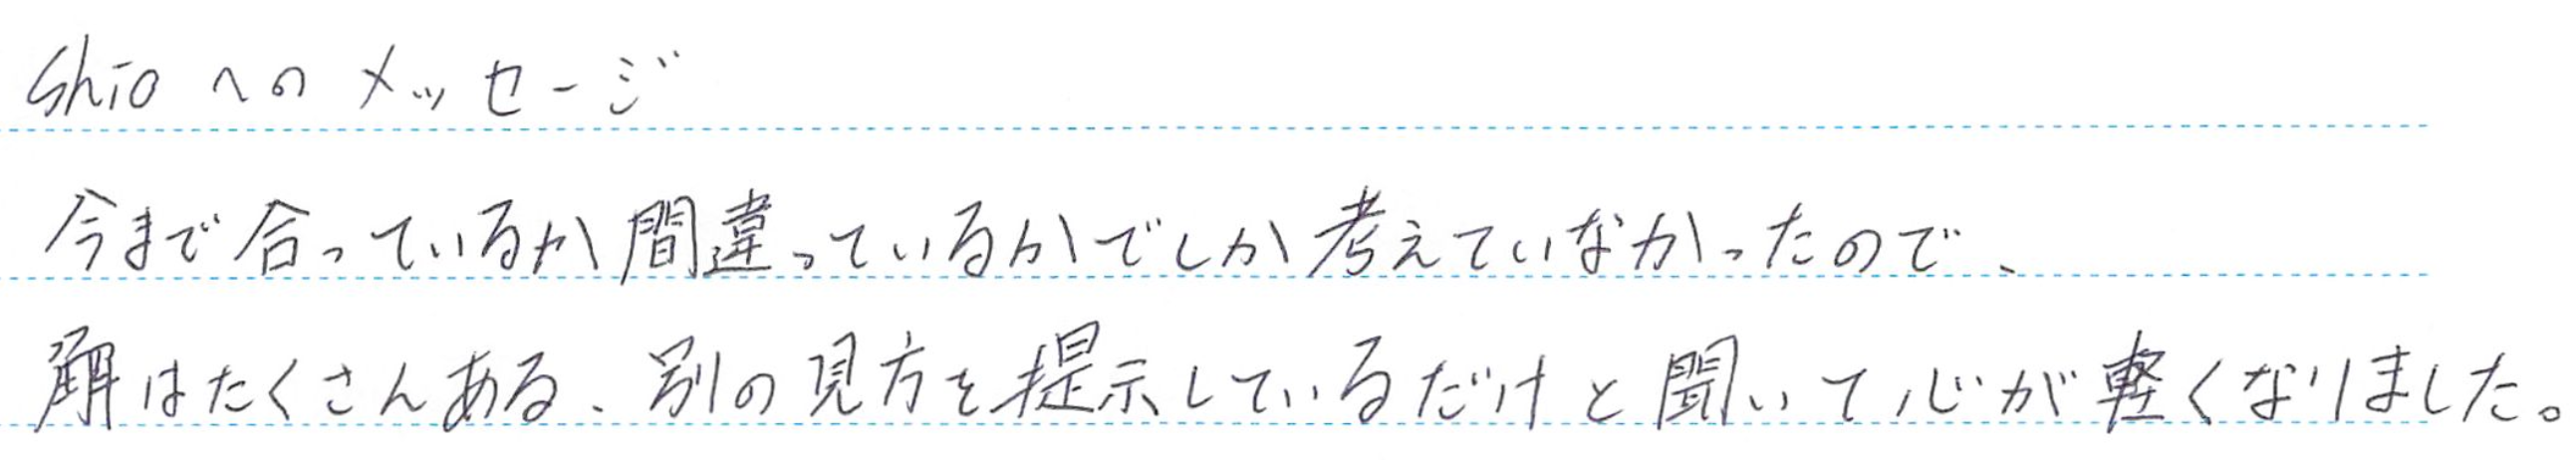 Shioへのメッセージ
今まで合っているか間違っているかでしか考えていなかったので、
解はたくさんある、別の見方を提示しているだけと聞いて心が軽くなりました。